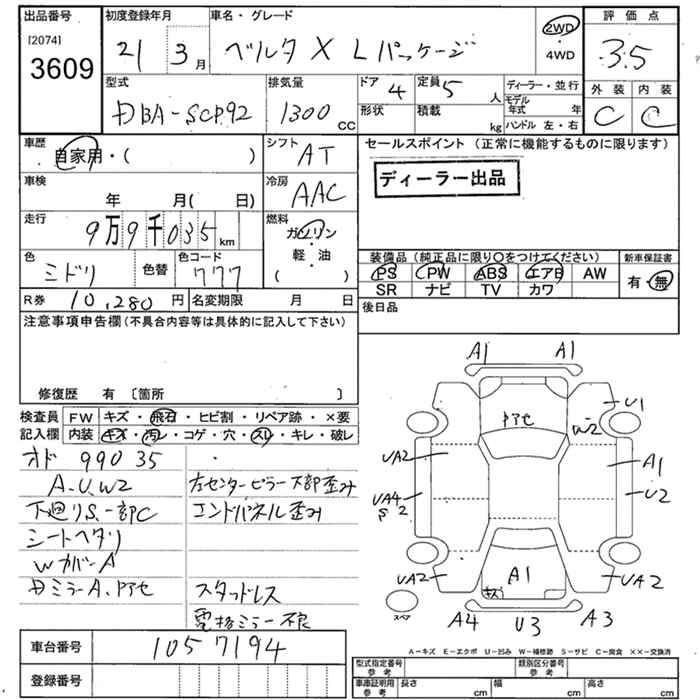 出品番号
[2074]
3609
初度登録年月
21 3月
車名・グレード
ベルタ X Lパッケージ
2WD
4WD
評価点
3.5
型式
DBA-SCP92
排気量
1300 CC
ドア 4
定員 5 人
形状
積載 kg
ディーラー・並行
モデル年式 年
ハンドル 左・右
外装 内装
C C
車歴
自家用・( )
シフト
AT
セールスポイント (正常に機能するものに限ります)
ディーラー出品
車検
年 月( 日)
冷房
AAC
走行
9万9千035 km
燃料
ガソリン
・
軽・油
( )
色
ミドリ
色替
色コード
777
装備品 (純正品に限り○をつけてください) 新車保証書
PS PW ABS エアB AW 有・無
SR ナビ TV カワ
R券 10,280円 名変期限 月 日
後日品
注意事項申告欄(不具合内容等は具体的に記入して下さい)
修復歴 有 〔箇所 〕
検査員記入欄
FW キズ・飛石・ヒビ割・リペア跡・×要
内装 キズ・汚レ・コゲ・穴・スレ・キレ・破レ
オド 99035
A.U.W2
下廻りS.一部C
シートヘタリ
WカバーA
左センターピラー下部歪み
エンドパネル歪み
スタッドレス
電格ミラー不良
車台番号 1057194
登録番号
A1 A1
U1
W2
UA2
A1
UA4
S2
U2
UA2
A1
キズ
UA2
スペア
A4 U3 A3
A-キズ E-エクボ U-凹み W-補修跡 S-サビ C-腐食 ××-交換済
型式指定番号 参考
類別区分番号 参考
車庫証明用 参考
長さ cm 幅 cm 高さ cm